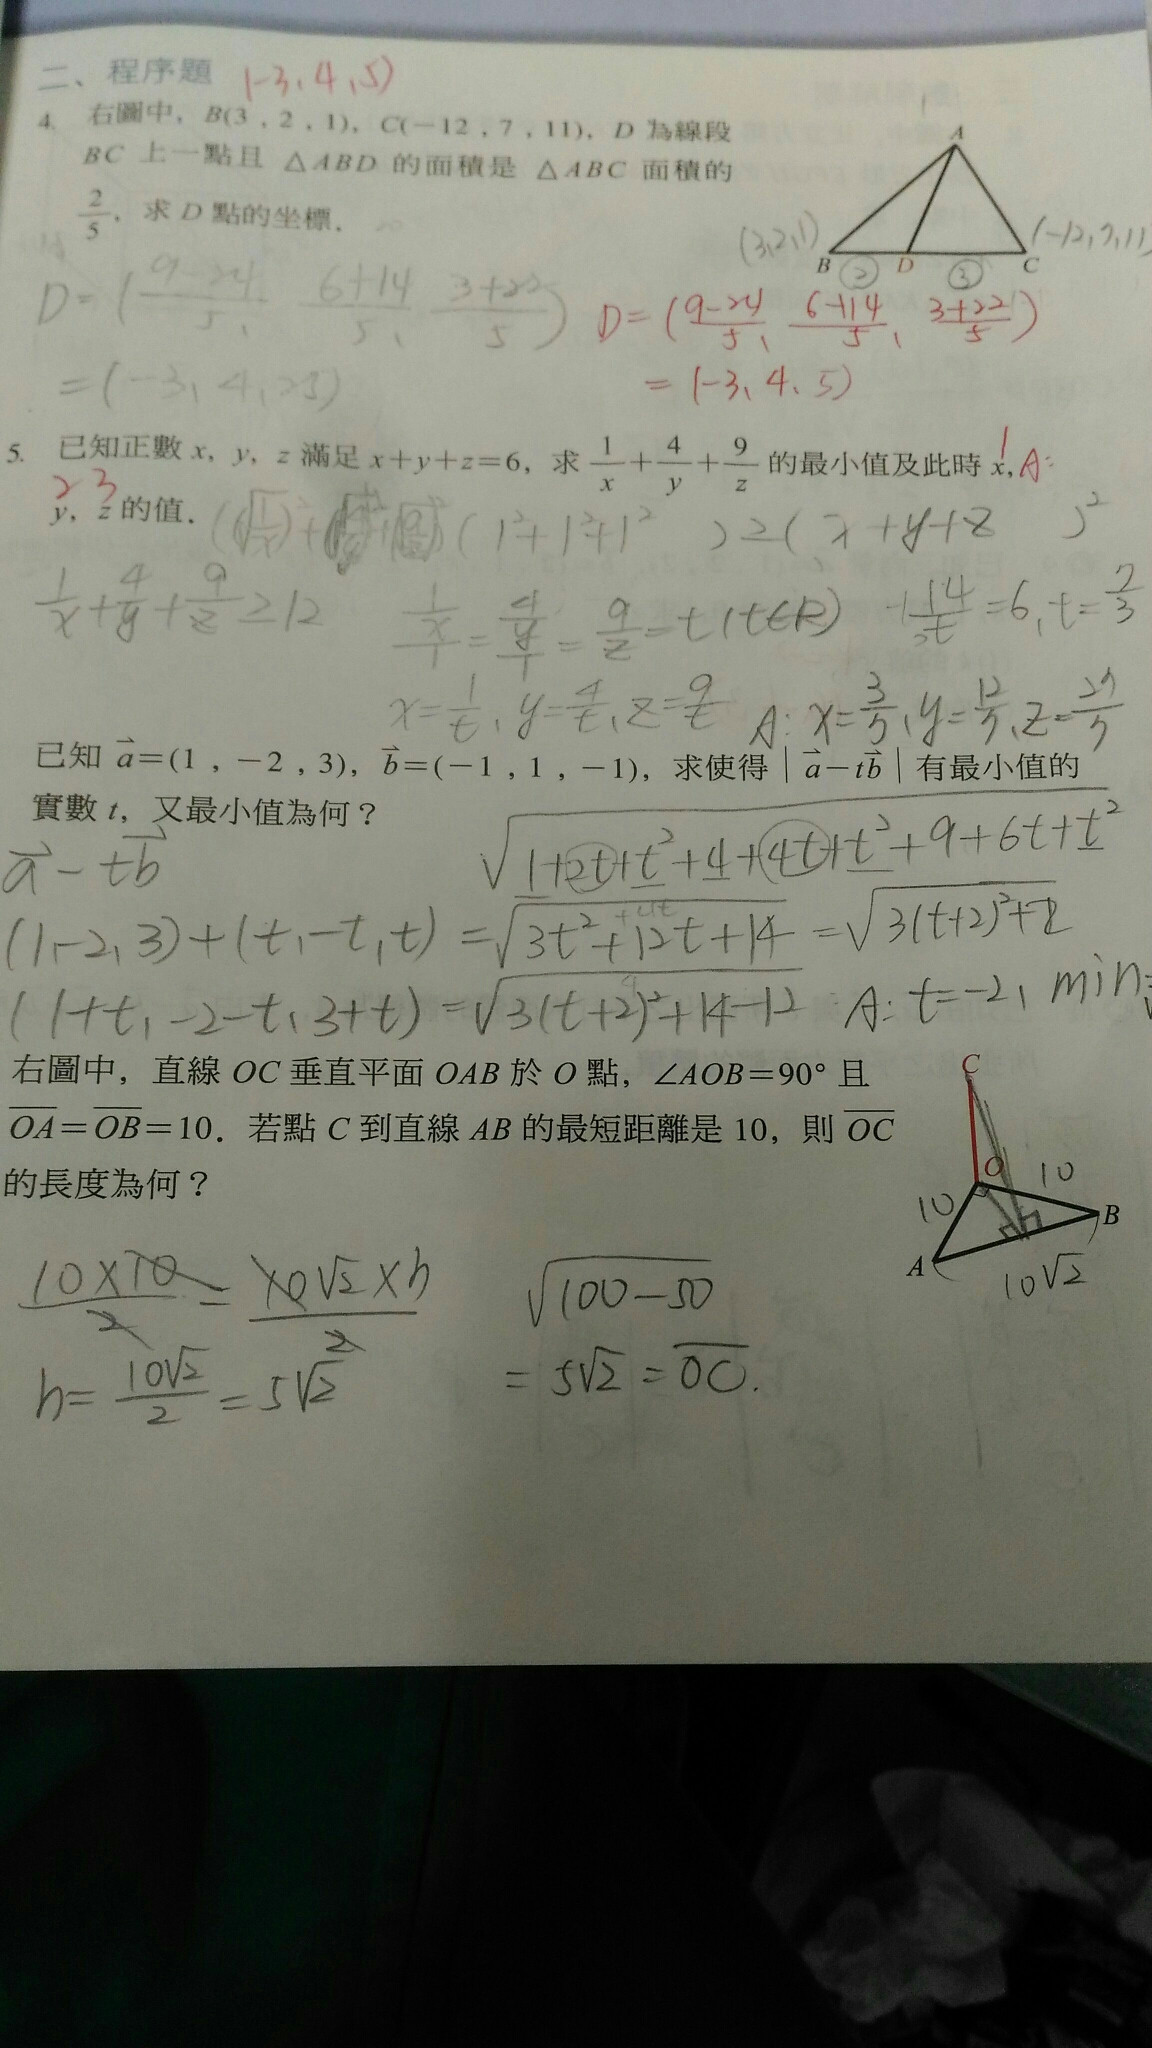 二、程序題 (-3、4、5)
4. 右圖中，B(3 , 2 , 1)，C(−12 , 7 , 11)，D 為線段
BC 上一點且 △ABD 的面積是 △ABC 面積的
2/5，求 D 點的坐標．
A
(3,2,1) B ② D ③ C (-12,7,11)
D = (9-24/5, 6+14/5, 3+22/5)
= (-3, 4, 25)
D = (9-24/5, 6+14/5, 3+22/5)
= (-3、4、5)
5. 已知正數 x，y，z 滿足 x+y+z=6，求 1/x + 4/y + 9/z 的最小值及此時 x，
1 A:
2 3
y，z 的值．
(1²+1²+1²) ≥ (x+y+z)²
1/x + 4/y + 9/z ≥ 12
1/x/1 = 4/y/1 = 9/z = t (t∈R)
14/t = 6, t = 7/3
x = 1/t, y = 4/t, z = 9/t
A: x = 3/7, y = 12/7, z = 27/7
已知 a⃗=(1 , −2 , 3)，b⃗=(−1 , 1 , −1)，求使得 | a⃗−tb⃗ | 有最小值的
實數 t，又最小值為何？
a⃗ - tb⃗
√1+2t+t²+4+4t+t²+9+6t+t²
(1,-2,3)+(t,-t,t) = √3t²+12t+14 = √3(t+2)²+2
(1+t,-2-t,3+t) = √3(t+2)²+14-12 A: t=-2, min=√
右圖中，直線 OC 垂直平面 OAB 於 O 點，∠AOB=90° 且
OA=OB=10．若點 C 到直線 AB 的最短距離是 10，則 OC
的長度為何？
C
O
10
10
B
A
10√2
10×10/2 = 10√2×h/2
h = 10√2/2 = 5√2
√100-50
= 5√2 = OC.